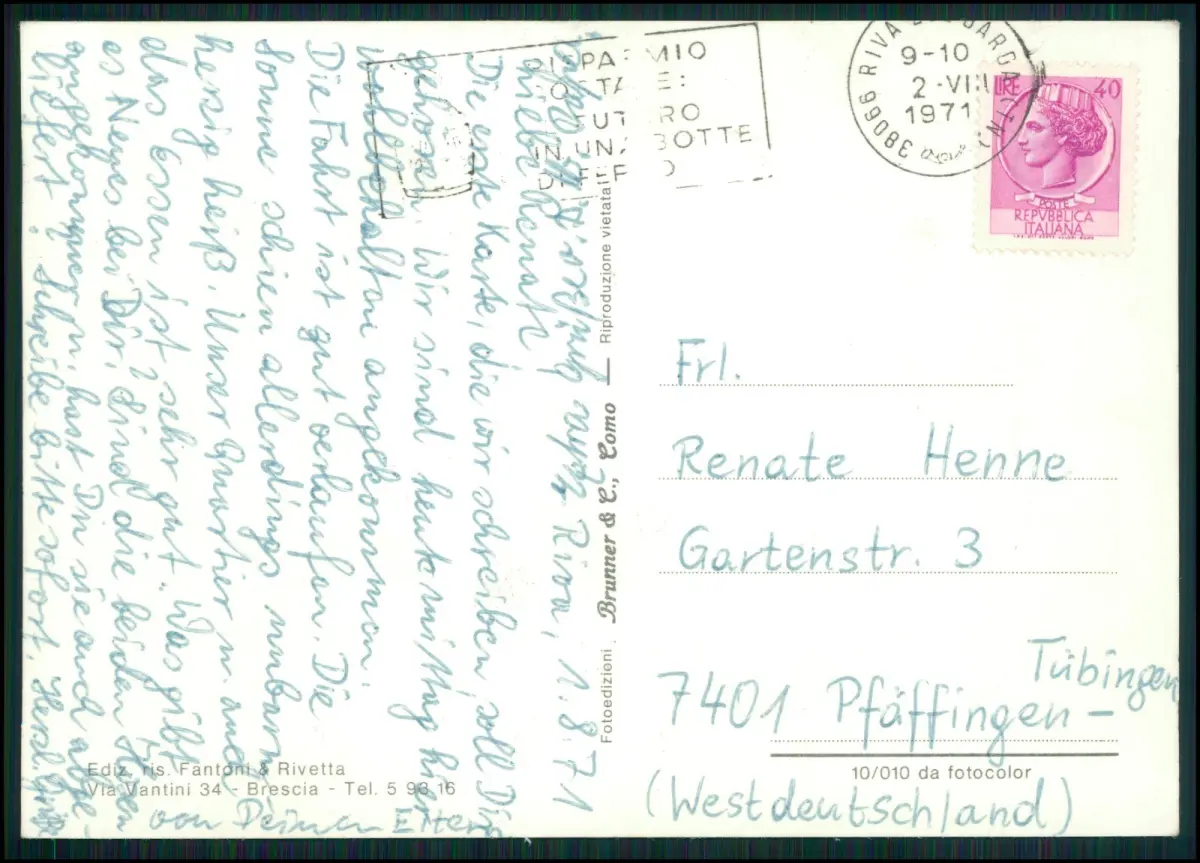 Riva, 1.8.71
Liebe Renate
Die erste Karte, die wir schreiben, soll Dir
gehören. Wir sind heute mittag hier
wohlbehalten angekommen.
Die Fahrt ist gut verlaufen. Die
Sonne schien allerdings unbarm-
herzig heiß. Unser Quartier u. auch
das Essen ist sehr gut. Was gibt
es Neues bei Dir? Sind die beiden
angekommen, hast Du sie auch abge-
liefert? Schreibe bitte sofort. Herzl. Grüße
von Deinen Eltern
Fotoedizioni Brunner & C., Como — Riproduzione vietata
RISPARMIO
POSTALE:
FUTURO
IN UNA BOTTE
DI FERRO
38066 RIVA DEL GARDA (TN)
9-10
2 -VIII
1971
LIRE 40
POSTE
REPVBBLICA
ITALIANA
Frl.
Renate Henne
Gartenstr. 3
Tübingen
7401 Pfäffingen -
(Westdeutschland)
10/010 da fotocolor
Ediz. ris. Fantoni & Rivetta
Via Vantini 34 - Brescia - Tel. 5 93 16